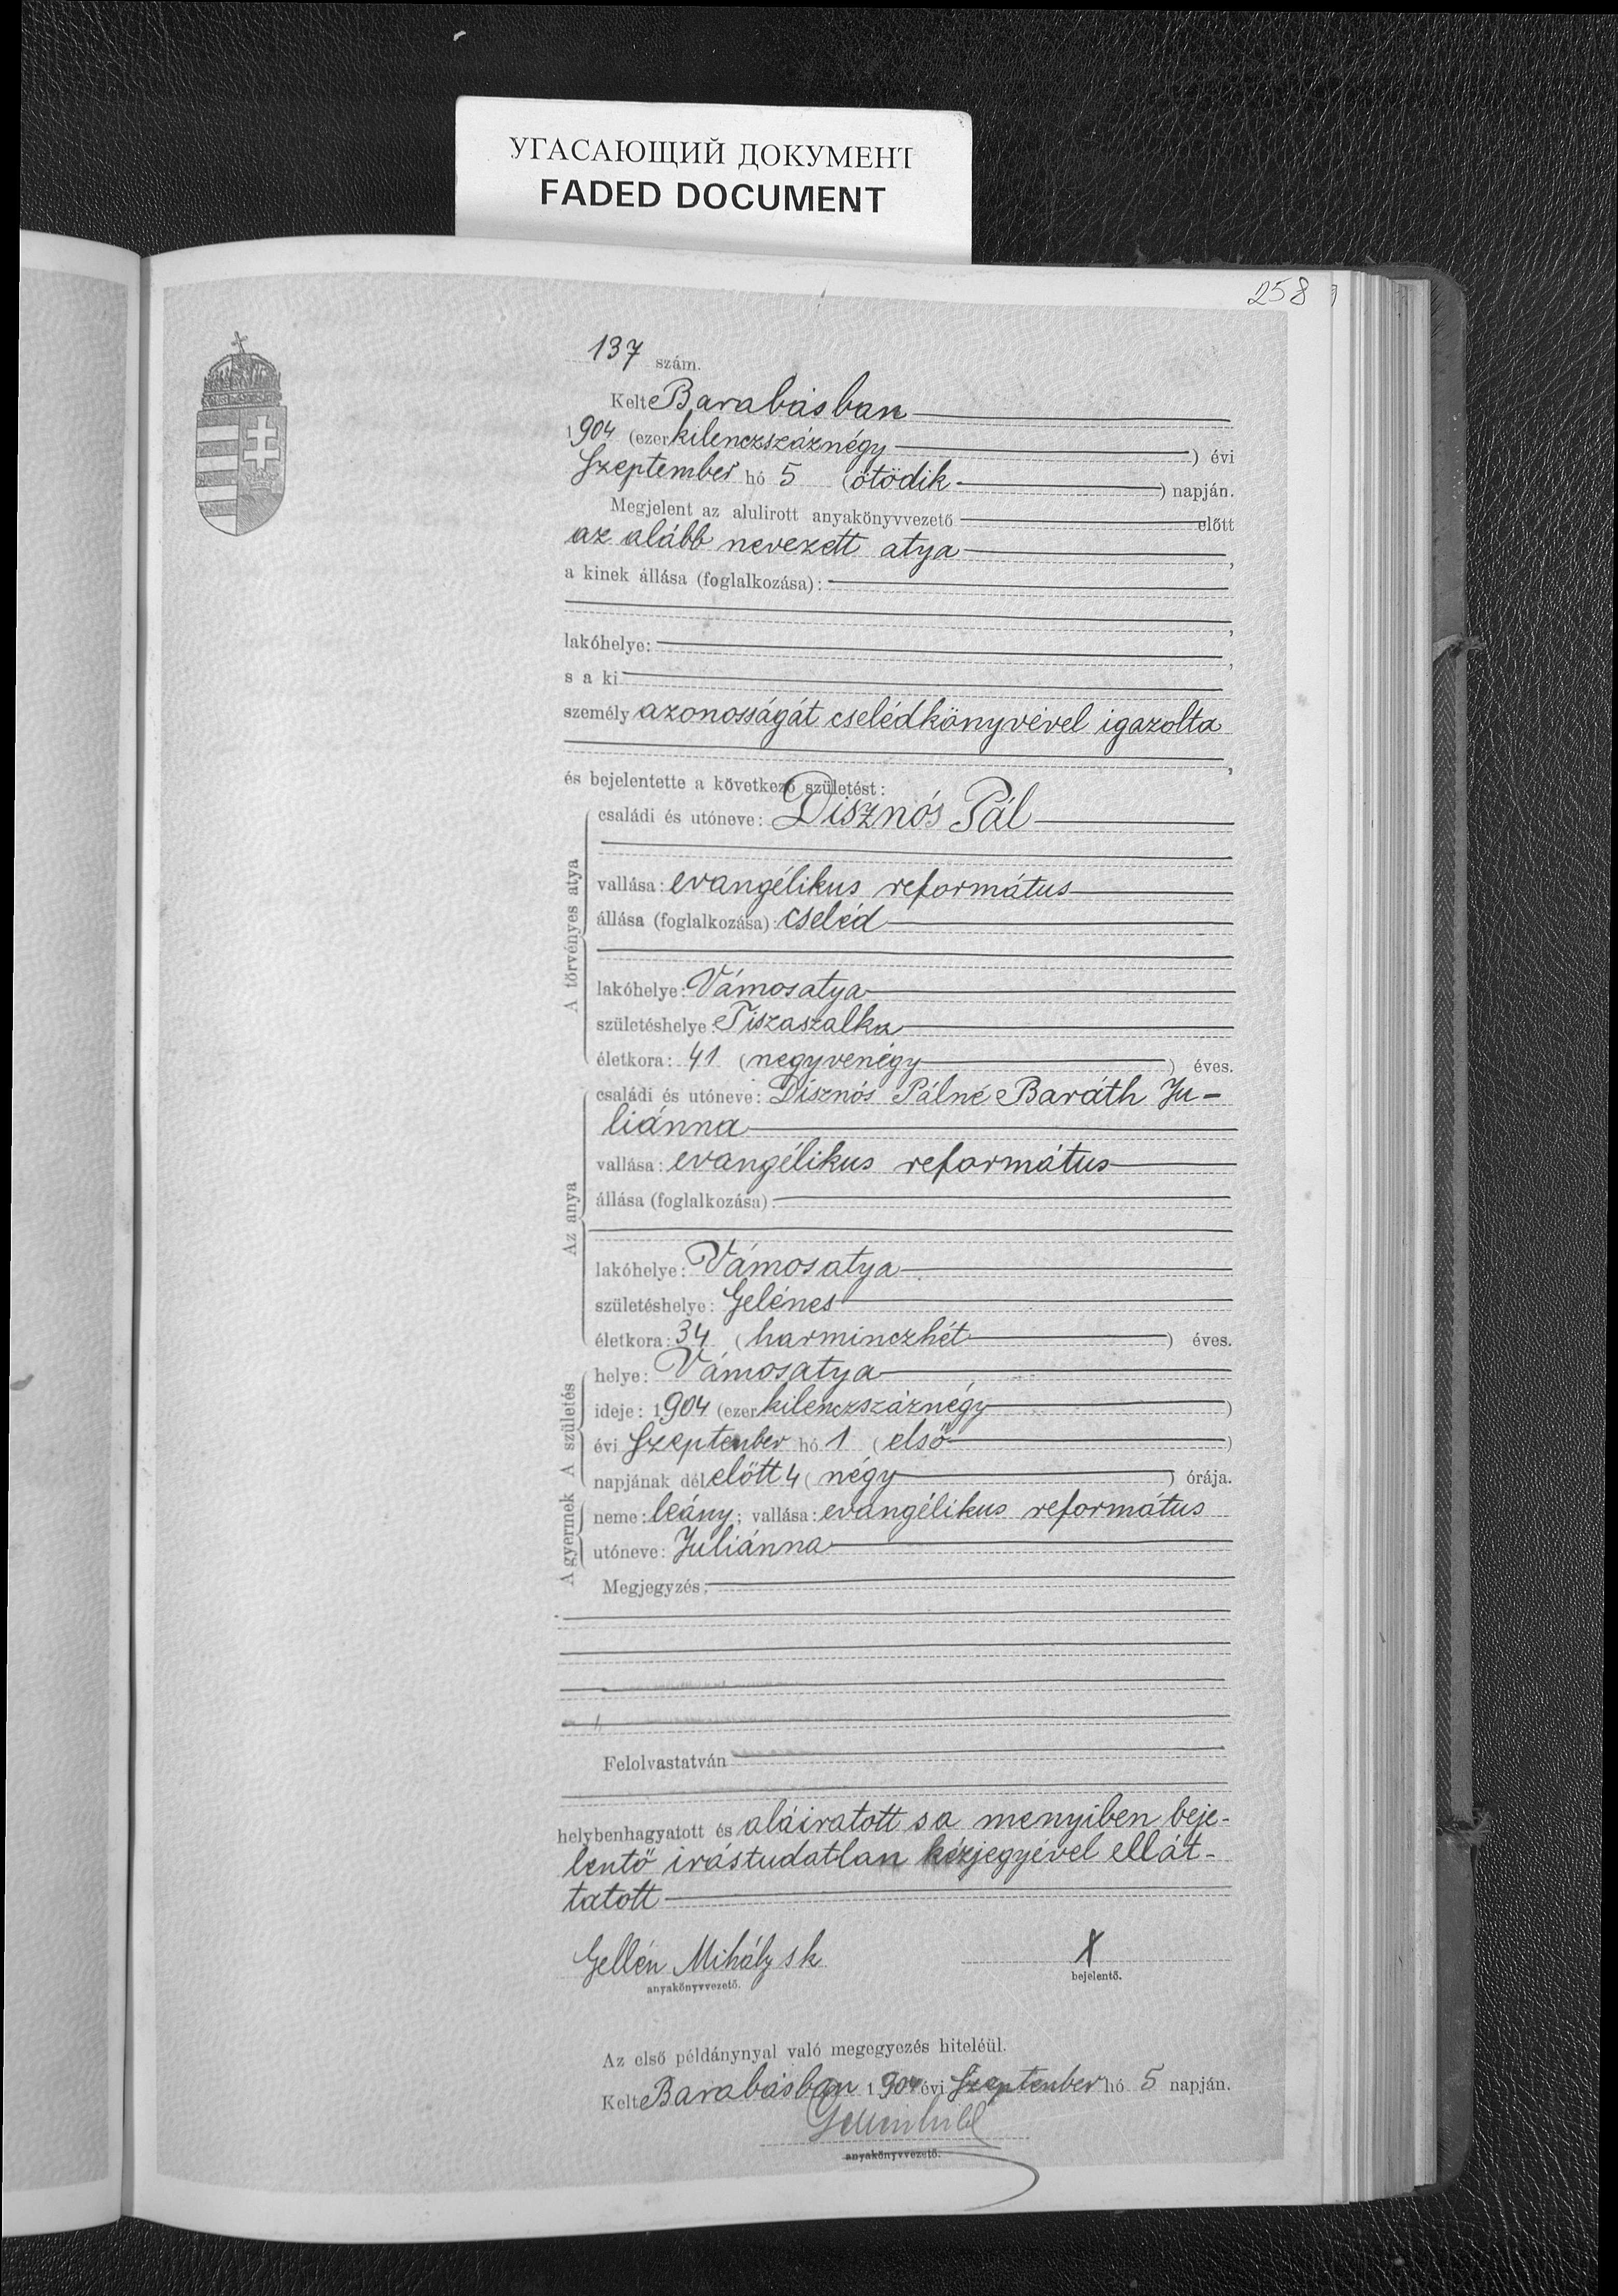 УГАСАЮЩИЙ ДОКУМЕНТ
FADED DOCUMENT
258
137 szám.
Kelt Barabásban
1904 (ezer kilenczszáznégy) évi
Szeptember hó 5 (ötödik) napján.
Megjelent az alulirott anyakönyvvezető előtt
az alább nevezett atya,
a kinek állása (foglalkozása):
,
lakóhelye: ,
s a ki
személy azonosságát cselédkönyvével igazolta
,
és bejelentette a következő születést:
A törvényes atya
családi és utóneve: Disznós Pál
vallása: evangélikus református
állása (foglalkozása): cseléd
lakóhelye: Vámosatya
születéshelye: Tiszaszalka
életkora: 41 (negyvenégy) éves.
Az anya
családi és utóneve: Disznós Pálné Baráth Ju-
liánna
vallása: evangélikus református
állása (foglalkozása):
lakóhelye: Vámosatya
születéshelye: Gelénes
életkora: 34 (harminczhét) éves.
A születés
helye: Vámosatya
ideje: 1904 (ezer kilenczszáznégy)
évi Szeptember hó 1 (első)
napjának dél előtt 4 (négy) órája.
A gyermek
neme: leány; vallása: evangélikus református
utóneve: Juliánna
Megjegyzés:
Felolvastatván
helybenhagyatott és aláiratott s a menyiben beje-
lentő irástudatlan kézjegyével ellát-
tatott
Gellén Mihály sk X
anyakönyvvezető. bejelentő.
Az első példánynyal való megegyezés hiteléül.
Kelt Barabásban 1904 évi Szeptember hó 5 napján.
anyakönyvvezető.